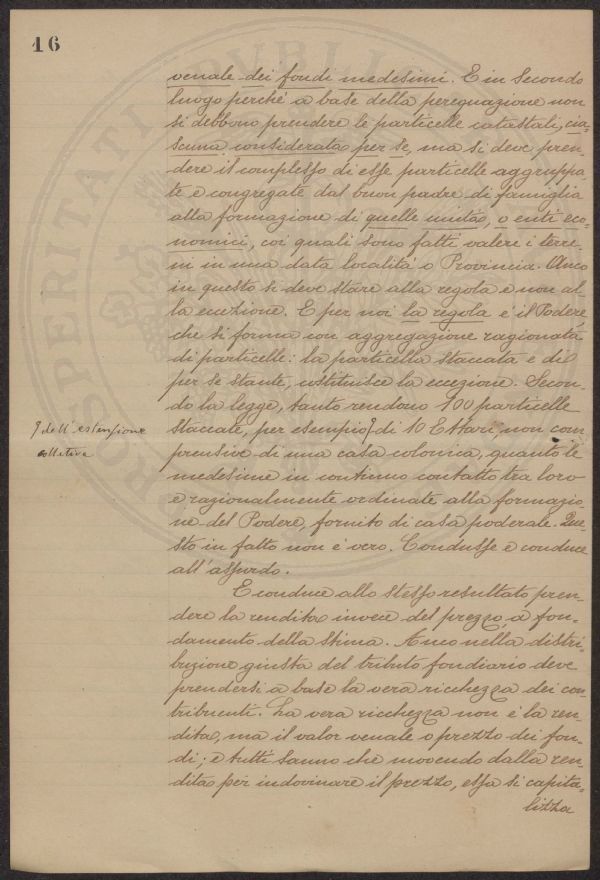 16
venale dei fondi medesimi. E in secondo
luogo perché a base della perequazione non
si debbono prendere le particelle catastali, cia-
scuna considerata per se, ma si deve pren-
dere il complesso di esse particelle aggruppa-
te e congregate dal buon padre di famiglia
alla formazione di quelle unità, o enti eco-
nomici, coi quali sono fatti valere i terre-
ni in una data località o Provincia. Anco
in questo si deve stare alla regola e non al-
la eccezione. E per noi la regola é il Podere,
che si forma con aggregazione ragionata
di particelle: la particella staccata e di
per se stante, costituisce la eccezione. Secon-
do la legge, tanto rendono 100 particelle
staccate, per esempio di 10 Ettari, non com
dell'estensione
collettiva
prensive di una casa colonica, quanto le
medesime in continuo contatto tra loro
e ragionalmente ordinate alla formazio-
ne del Podere, fornito di casa poderale. Que-
sto in fatto non é vero. Condusse e conduce
all'assurdo.
E conduce allo stesso resultato pren-
dere la rendita invece del prezzo, a fon-
damento della stima. Anco nella distri-
buzione giusta del tributo fondiario deve
prendersi a base la vera ricchezza dei con-
tribuenti. La vera ricchezza non é la ren-
dita, ma il valor venale o prezzo dei fon-
di; e tutti sanno che movendo dalla ren-
dita per indovinare il prezzo, essa si capita-
lizza
PROSPERITATI PVBLICAE